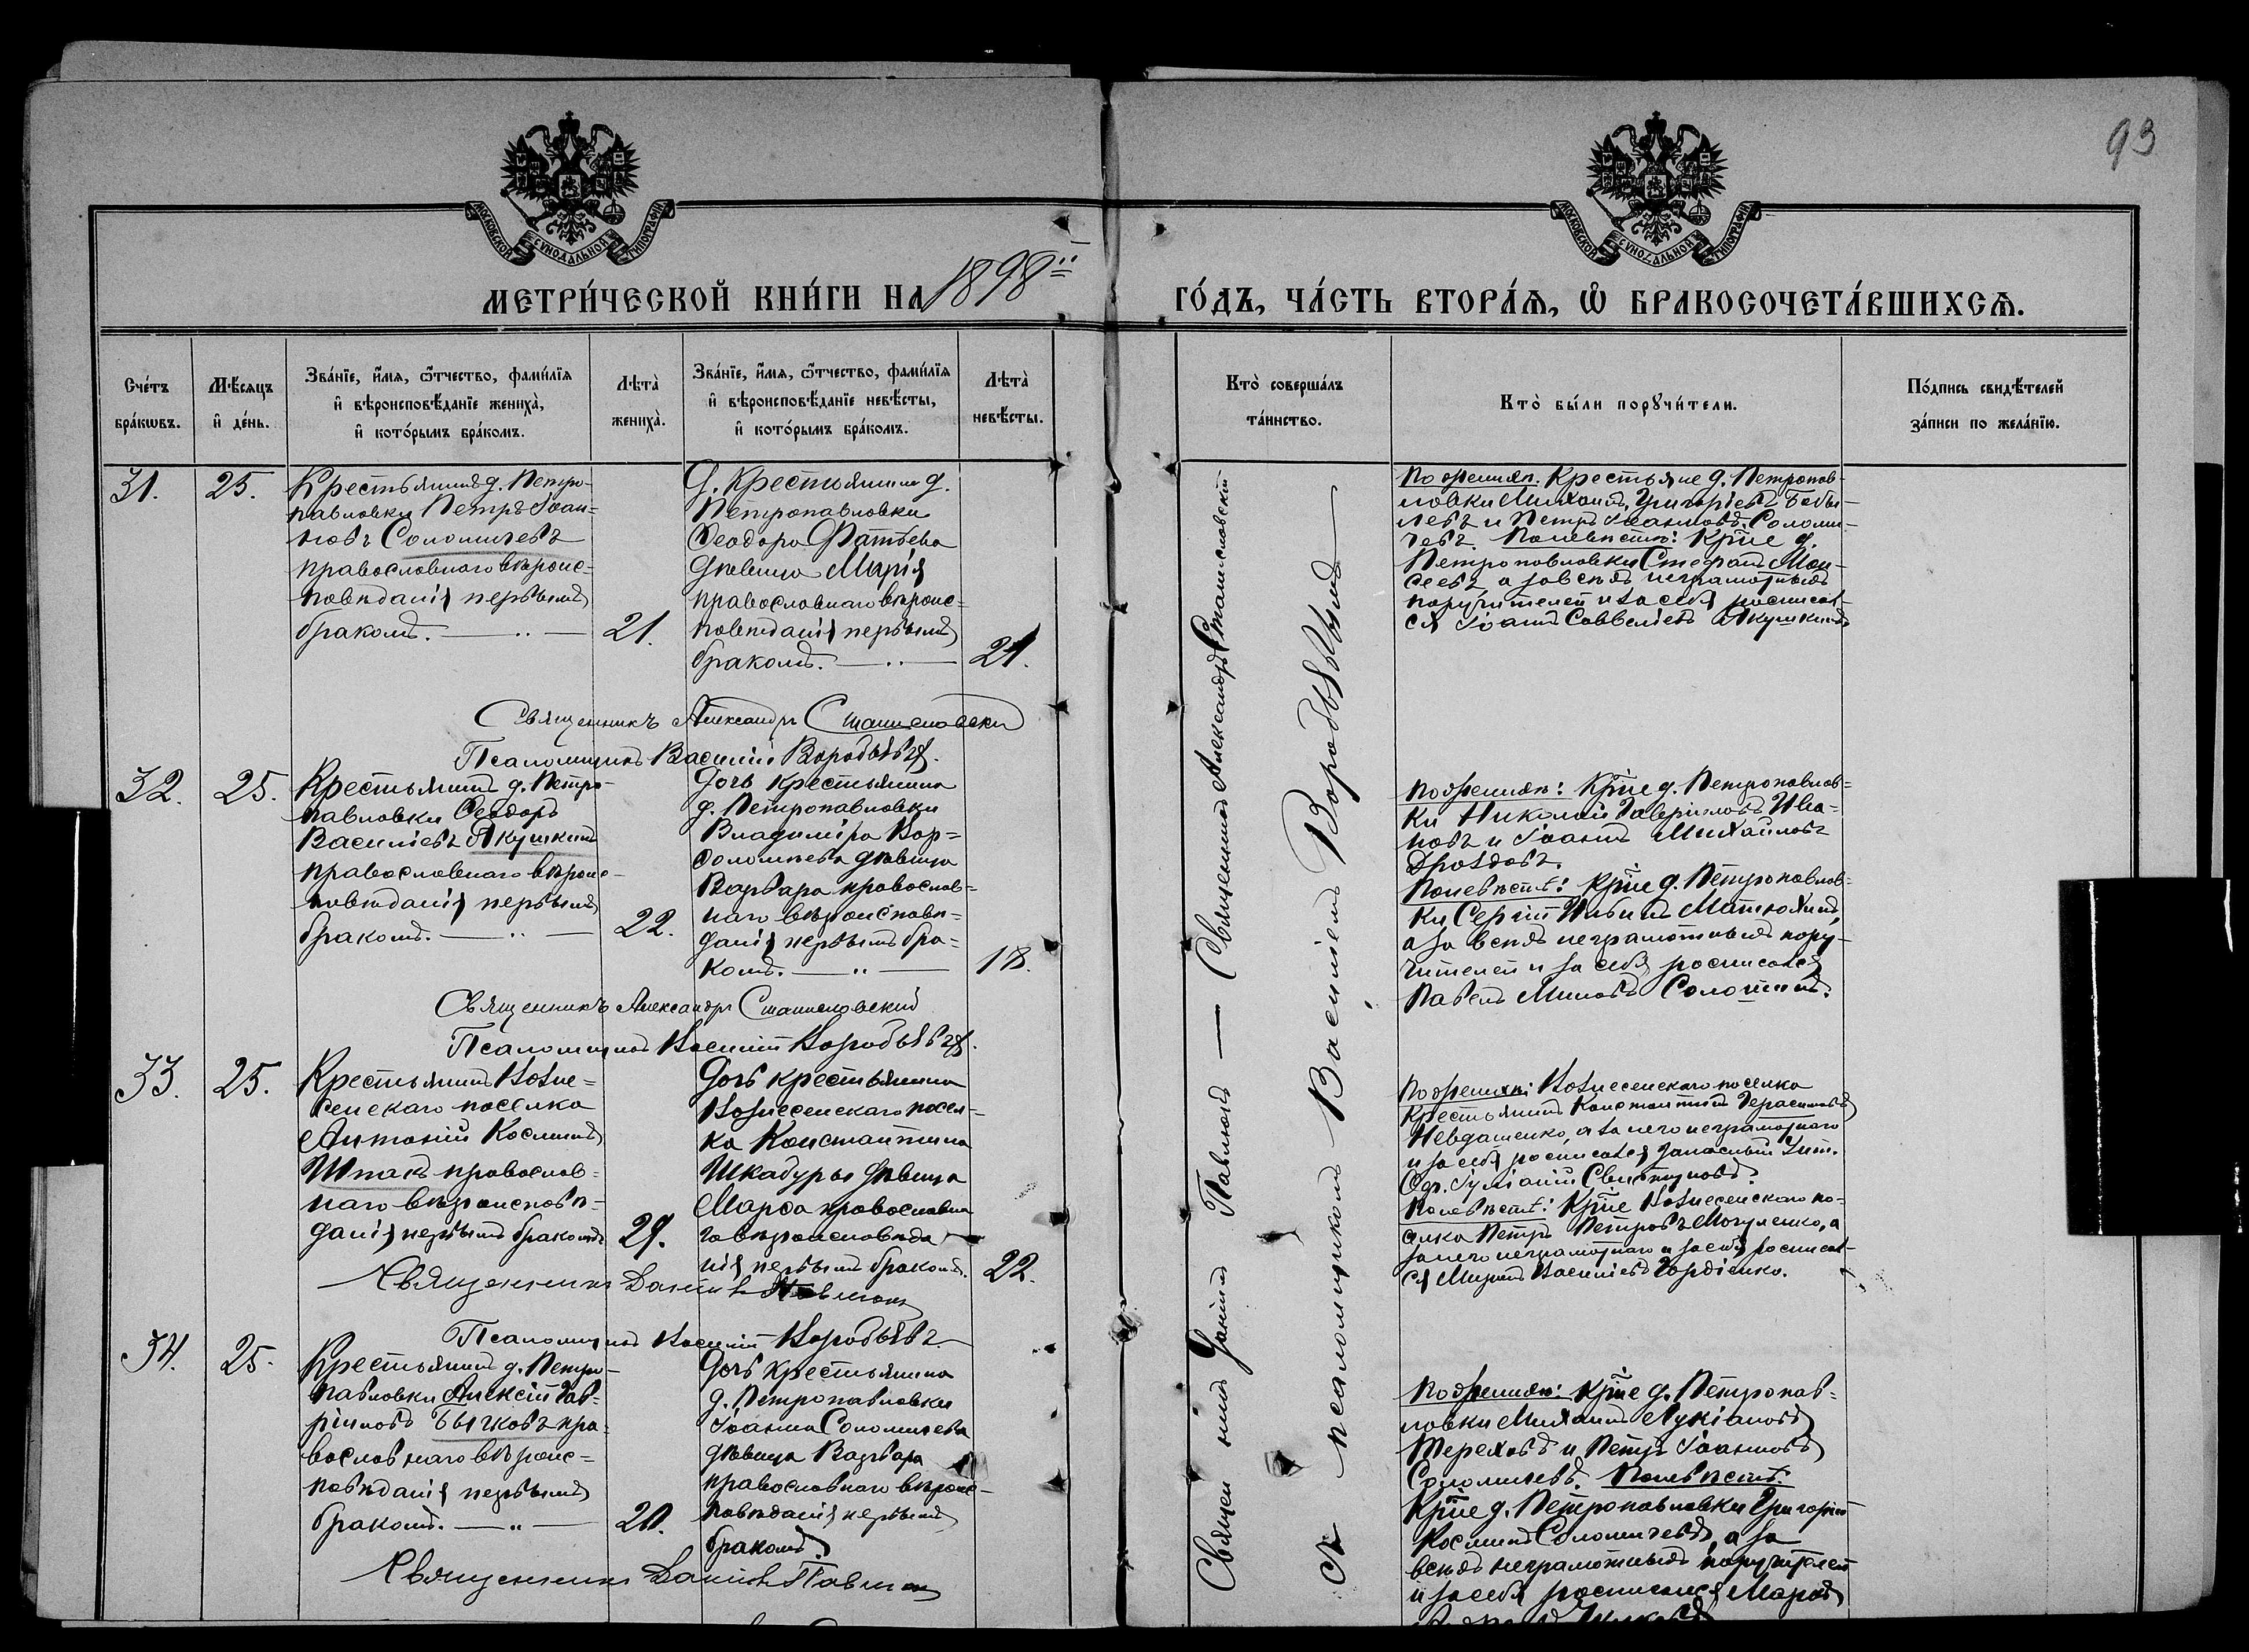 93
МОСКОВСКОЙ СУНОДАЛЬНОЙ ТИПОГРАФІИ
МОСКОВСКОЙ СУНОДАЛЬНОЙ ТИПОГРАФІИ
МЕТРИ́ЧЕСКОЙ КНИ́ГИ НА 1898
ГО́ДЪ, ЧА́СТЬ ВТОРА́Ѧ, Ѽ БРАКОСОЧЕТА́ВШИХСѦ.
Сче́тъ
бра́кѡвъ.
Мѣ́сяцъ
и҆ де́нь.
Зва́нїе, и҆́мя, ѻ҆́тчество, фами́лїя
и҆ вѣроисповѣ́данїе жениха̀,
и҆ кото́рымъ бра́комъ.
Лѣта̀
жениха̀.
Зва́нїе, и҆́мя, ѻ҆́тчество, фами́лїя
и҆ вѣроисповѣ́данїе невѣ́сты,
и҆ кото́рымъ бра́комъ.
Лѣта̀
невѣ́сты.
Кто̀ соверша́лъ
та́инство.
Кто̀ бы́ли порꙋчи́тели.
По́дпись свидѣ́телей
за́писи по жела́нїю.
31.
25.
Крестьянинъ д. Петро-
павловки Петръ Іоан=
новъ Соломичевъ
православнаго вѣроис=
повѣданія первымъ
бракомъ.
21.
Д. Крестьянина д.
Петропавловки
Ѳеодора
дѣвица Марія
православнаго вѣроис=
повѣданія первымъ
бракомъ.
21.
По женихѣ. Крестьяне д. Петропав=
ловки Михаилъ Григорьевъ
и Петръ Іоанновъ Соломи-
чевъ. По невѣстѣ: Кр̃не д.
Петропавловки Стефанъ Мои-
сеевъ а за всѣхъ неграмотныхъ
поручителей и за себя росписал-
ся Іоаннъ Савельевъ Якушкинъ
Священникъ Александръ Станиславскій
Псаломщикъ Василій Воробьевъ.
32.
25.
Крестьянинъ д. Петро-
павловки Ѳеодоръ
Васильевъ Якушкинъ
православнаго вѣроис-
повѣданія первымъ
бракомъ.
22.
Дочь крестьянина
д. Петропавловки
Владиміра Вар=
ѳоломеева дѣвица
Варвара православ=
наго вѣроисповѣ=
данія первымъ бра=
комъ.
18.
По женихѣ: Кр̃не д. Петропавлов=
ки Николай Гавріиловъ Ива=
новъ и Іоаннъ Михайловъ
Дроздовъ.
По невѣстѣ: Кр̃не д. Петропавлов=
ки Сергій Ильинъ Матюхинъ,
а за всѣхъ неграмотныхъ пору-
чителей и за себя росписался
Павелъ Миновъ
Священникъ Александръ Станиславскій
Псаломщикъ Василій Воробьевъ.
33.
25.
Крестьянинъ Возне=
сенскаго поселка
Антоній Косминъ
Шпакъ православ=
наго вѣроисповѣ=
данія первымъ бракомъ
29.
Дочь крестьянина
Вознесенскаго посел=
ка Константина
Шкадуры дѣвица
Марѳа православна
го вѣроисповѣда
нія первымъ бракомъ.
22.
По женихѣ: Вознесенскаго поселка
Крестьянинъ Константинъ Герасимовъ
Невдашенко, а за него неграмотнаго
и за себя росписался запасный Унт.
Оф. Іуліаній Свистуновъ.
По невѣстѣ: Кр̃не Вознесенскаго по-
селка Петръ Петровъ Могиленко, а
за него неграмотнаго и за себя росписал-
ся Миронъ Васильевъ Гордіенко.
Священникъ Даніилъ Павлюкъ
Псаломщикъ Василій Воробьевъ
34.
25.
Крестьянинъ д. Петро-
павловки Алексій Гав-
ріиловъ Бычковъ пра-
вославнаго вѣроис=
повѣданія первымъ
бракомъ.
20.
Дочь крестьянина
д. Петропавловки
Іоанна Соломичева
дѣвица Варвара
православнаго вѣроис-
повѣданія первымъ
бракомъ.
По женихѣ: Кр̃не д. Петропав=
ловки Михаилъ Лукіановъ
Тереховъ и Петръ Іоанновъ
Соломичевъ. По невѣстѣ:
Кр̃не д. Петропавловки Григорій
Косминъ Соломичевъ, а за
всѣхъ неграмотныхъ поручителей
и за себя росписался
Священникъ Даніилъ Павлюкъ
Священникъ Даніилъ Павлюкъ — Священникъ Александръ Станиславскій
съ псаломщикомъ Василіемъ Воробьевымъ